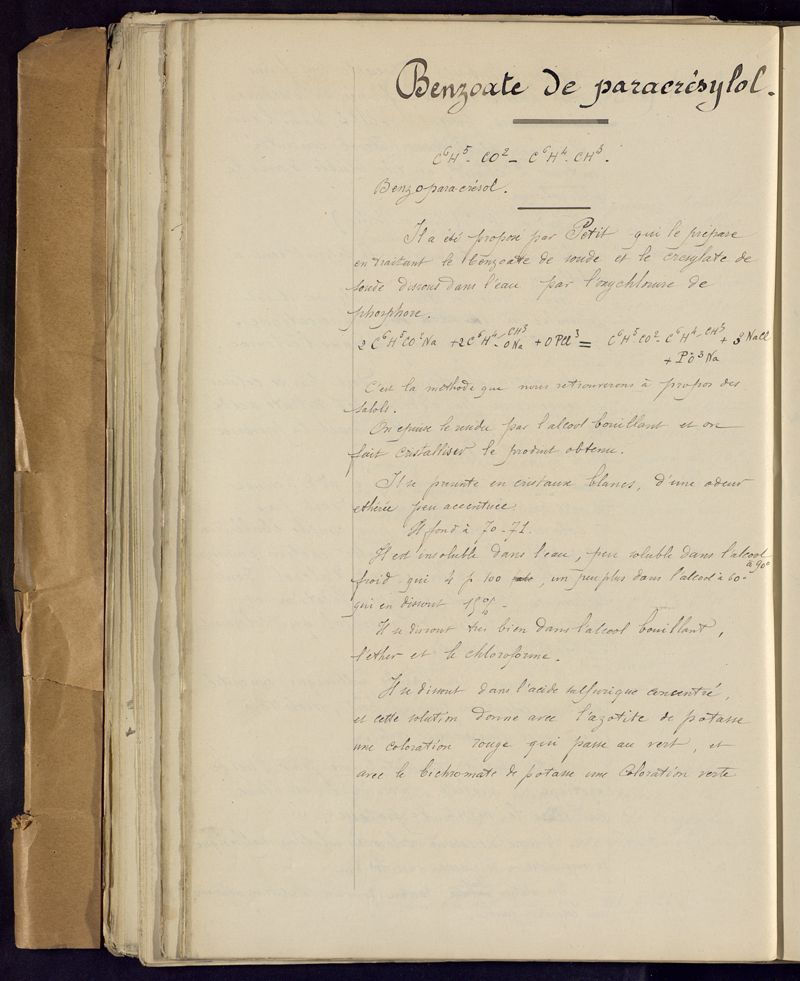 Benzoate de paracrésylol.
C⁶H⁵- CO² - C⁶H⁴. CH³.
Benzoparacrésol.
Il a été proposé par Petit qui le prépare
en traitant le benzoate de soude et le crésylate de
soude dissous dans l'eau par l'oxychlorure de
phosphore.
2 C⁶H⁵CO²Na + 2C⁶H⁴-CH³ONa + OPCl³ = C⁶H⁵CO² - C⁶H⁴-CH³ + 3 NaCl
+ PO³Na
C'est la méthode que nous retrouverons à propos des
salols.
On épuise le résidu par l'alcool bouillant et on
fait cristalliser le produit obtenu.
Il se présente en cristaux blancs, d'une odeur
éthérée peu accentuée.
Il fond à 70-71.
Il est insoluble dans l'eau, peu soluble dans l'alcool
à 90°
froid qui 4 p 100, un peu plus dans l'alcool à 60°
qui en dissout 15%.
Il se dissout très bien dans l'alcool bouillant,
l'ether et le chloroforme.
Il se dissout dans l'acide sulfurique concentré,
et cette solution donne avec l'azotite de potasse
une coloration rouge qui passe au vert, et
avec le bichromate de potasse une coloration verte